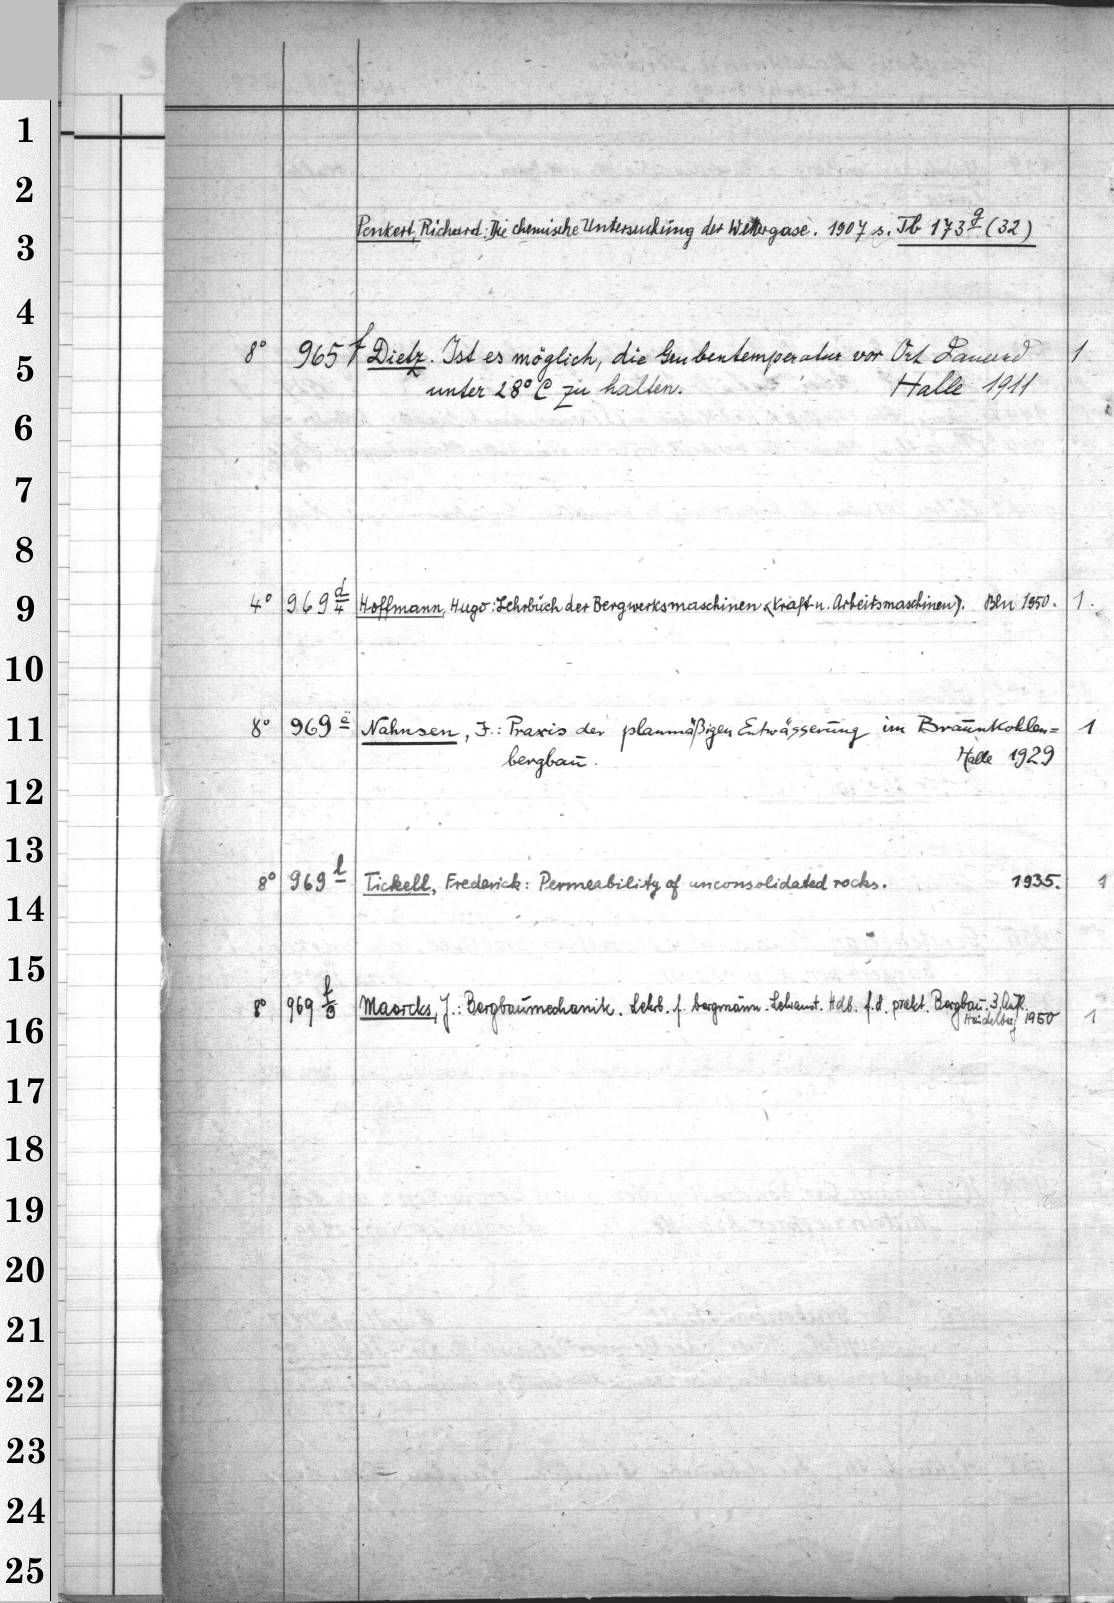 1
2
3
Penkert, Richard: Die chemische Untersuchung der Wettergase. 1907 s. Tb 173g (32)
4
5
8° 965 f Dietz. Ist es möglich, die Grubentemperatur vor Ort dauernd 1
unter 28° C zu halten. Halle 1911
6
7
8
9
4° 969 d/4 Hoffmann, Hugo: Lehrbuch der Bergwerksmaschinen (Kraft- u. Arbeitsmaschinen). Bln 1950. 1.
10
11
8° 969 e Nahnsen, F.: Praxis der planmäßigen Entwässerung im Braunkohlen= 1
bergbau. Halle 1929
12
13
8° 969 l Tickell, Frederick: Permeability of unconsolidated rocks. 1935. 1
14
15
8° 969 Maercks, J.: Bergbaumechanik. Lehrb. f. bergmänn. Lehranst. Hdb. f. d. prakt. Bergbau. 3. Aufl.
Heidelberg 1950 1
16
17
18
19
20
21
22
23
24
25